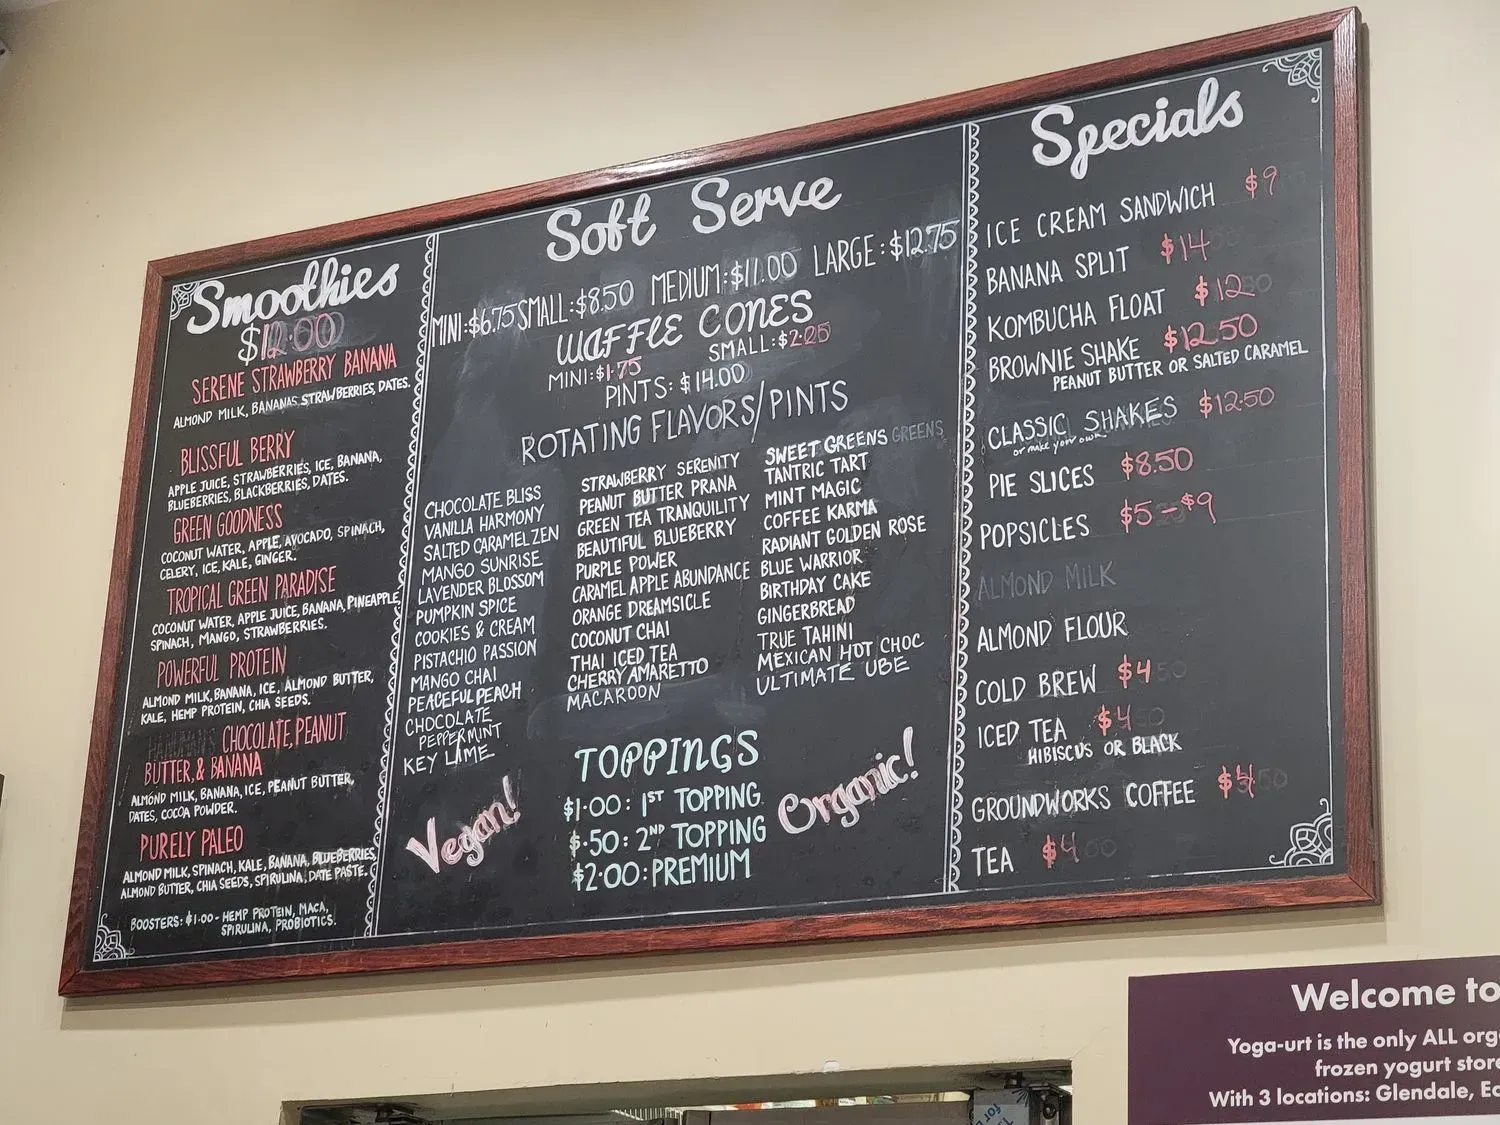 Smoothies
$12.00
SERENE STRAWBERRY BANANA
ALMOND MILK, BANANAS STRAWBERRIES, DATES.
BLISSFUL BERRY
APPLE JUICE, STRAWBERRIES, ICE, BANANA,
BLUEBERRIES, BLACKBERRIES, DATES.
GREEN GOODNESS
COCONUT WATER, APPLE, AVOCADO, SPINACH,
CELERY, ICE, KALE, GINGER.
TROPICAL GREEN PARADISE
COCONUT WATER, APPLE JUICE, BANANA, PINEAPPLE,
SPINACH, MANGO, STRAWBERRIES.
POWERFUL PROTEIN
ALMOND MILK, BANANA, ICE, ALMOND BUTTER,
KALE, HEMP PROTEIN, CHIA SEEDS.
CHOCOLATE, PEANUT
BUTTER, & BANANA
ALMOND MILK, BANANA, ICE, PEANUT BUTTER,
DATES, COCOA POWDER.
PURELY PALEO
ALMOND MILK, SPINACH, KALE, BANANA, BLUEBERRIES,
ALMOND BUTTER, CHIA SEEDS, SPIRULINA, DATE PASTE.
BOOSTERS: $1.00 - HEMP PROTEIN, MACA,
SPIRULINA, PROBIOTICS.
Soft Serve
MINI: $6.75 SMALL: $8.50 MEDIUM: $11.00 LARGE: $12.75
WAFFLE CONES
MINI: $1.75 SMALL: $2.25
PINTS: $14.00
ROTATING FLAVORS/PINTS
CHOCOLATE BLISS
VANILLA HARMONY
SALTED CARAMEL ZEN
MANGO SUNRISE
LAVENDER BLOSSOM
PUMPKIN SPICE
COOKIES & CREAM
PISTACHIO PASSION
MANGO CHAI
PEACEFUL PEACH
CHOCOLATE
PEPPERMINT
KEY LIME
STRAWBERRY SERENITY
PEANUT BUTTER PRANA
GREEN TEA TRANQUILITY
BEAUTIFUL BLUEBERRY
PURPLE POWER
CARAMEL APPLE ABUNDANCE
ORANGE DREAMSICLE
COCONUT CHAI
THAI ICED TEA
CHERRY AMARETTO
MACAROON
SWEET GREENS GREENS
TANTRIC TART
MINT MAGIC
COFFEE KARMA
RADIANT GOLDEN ROSE
BLUE WARRIOR
BIRTHDAY CAKE
GINGERBREAD
TRUE TAHINI
MEXICAN HOT CHOC
ULTIMATE UBE
Vegan!
TOPPINGS
$1.00: 1ST TOPPING
$.50: 2ND TOPPING
$2.00: PREMIUM
Organic!
Specials
ICE CREAM SANDWICH $9
BANANA SPLIT $14
KOMBUCHA FLOAT $12
BROWNIE SHAKE $12.50
PEANUT BUTTER OR SALTED CARAMEL
CLASSIC SHAKES $12.50
or make your own
PIE SLICES $8.50
POPSICLES $5-$9
ALMOND MILK
ALMOND FLOUR
COLD BREW $4
ICED TEA $4
HIBISCUS OR BLACK
GROUNDWORKS COFFEE $4
TEA $4
Welcome to
Yoga-urt is the only ALL org
frozen yogurt store
With 3 locations: Glendale, Ec